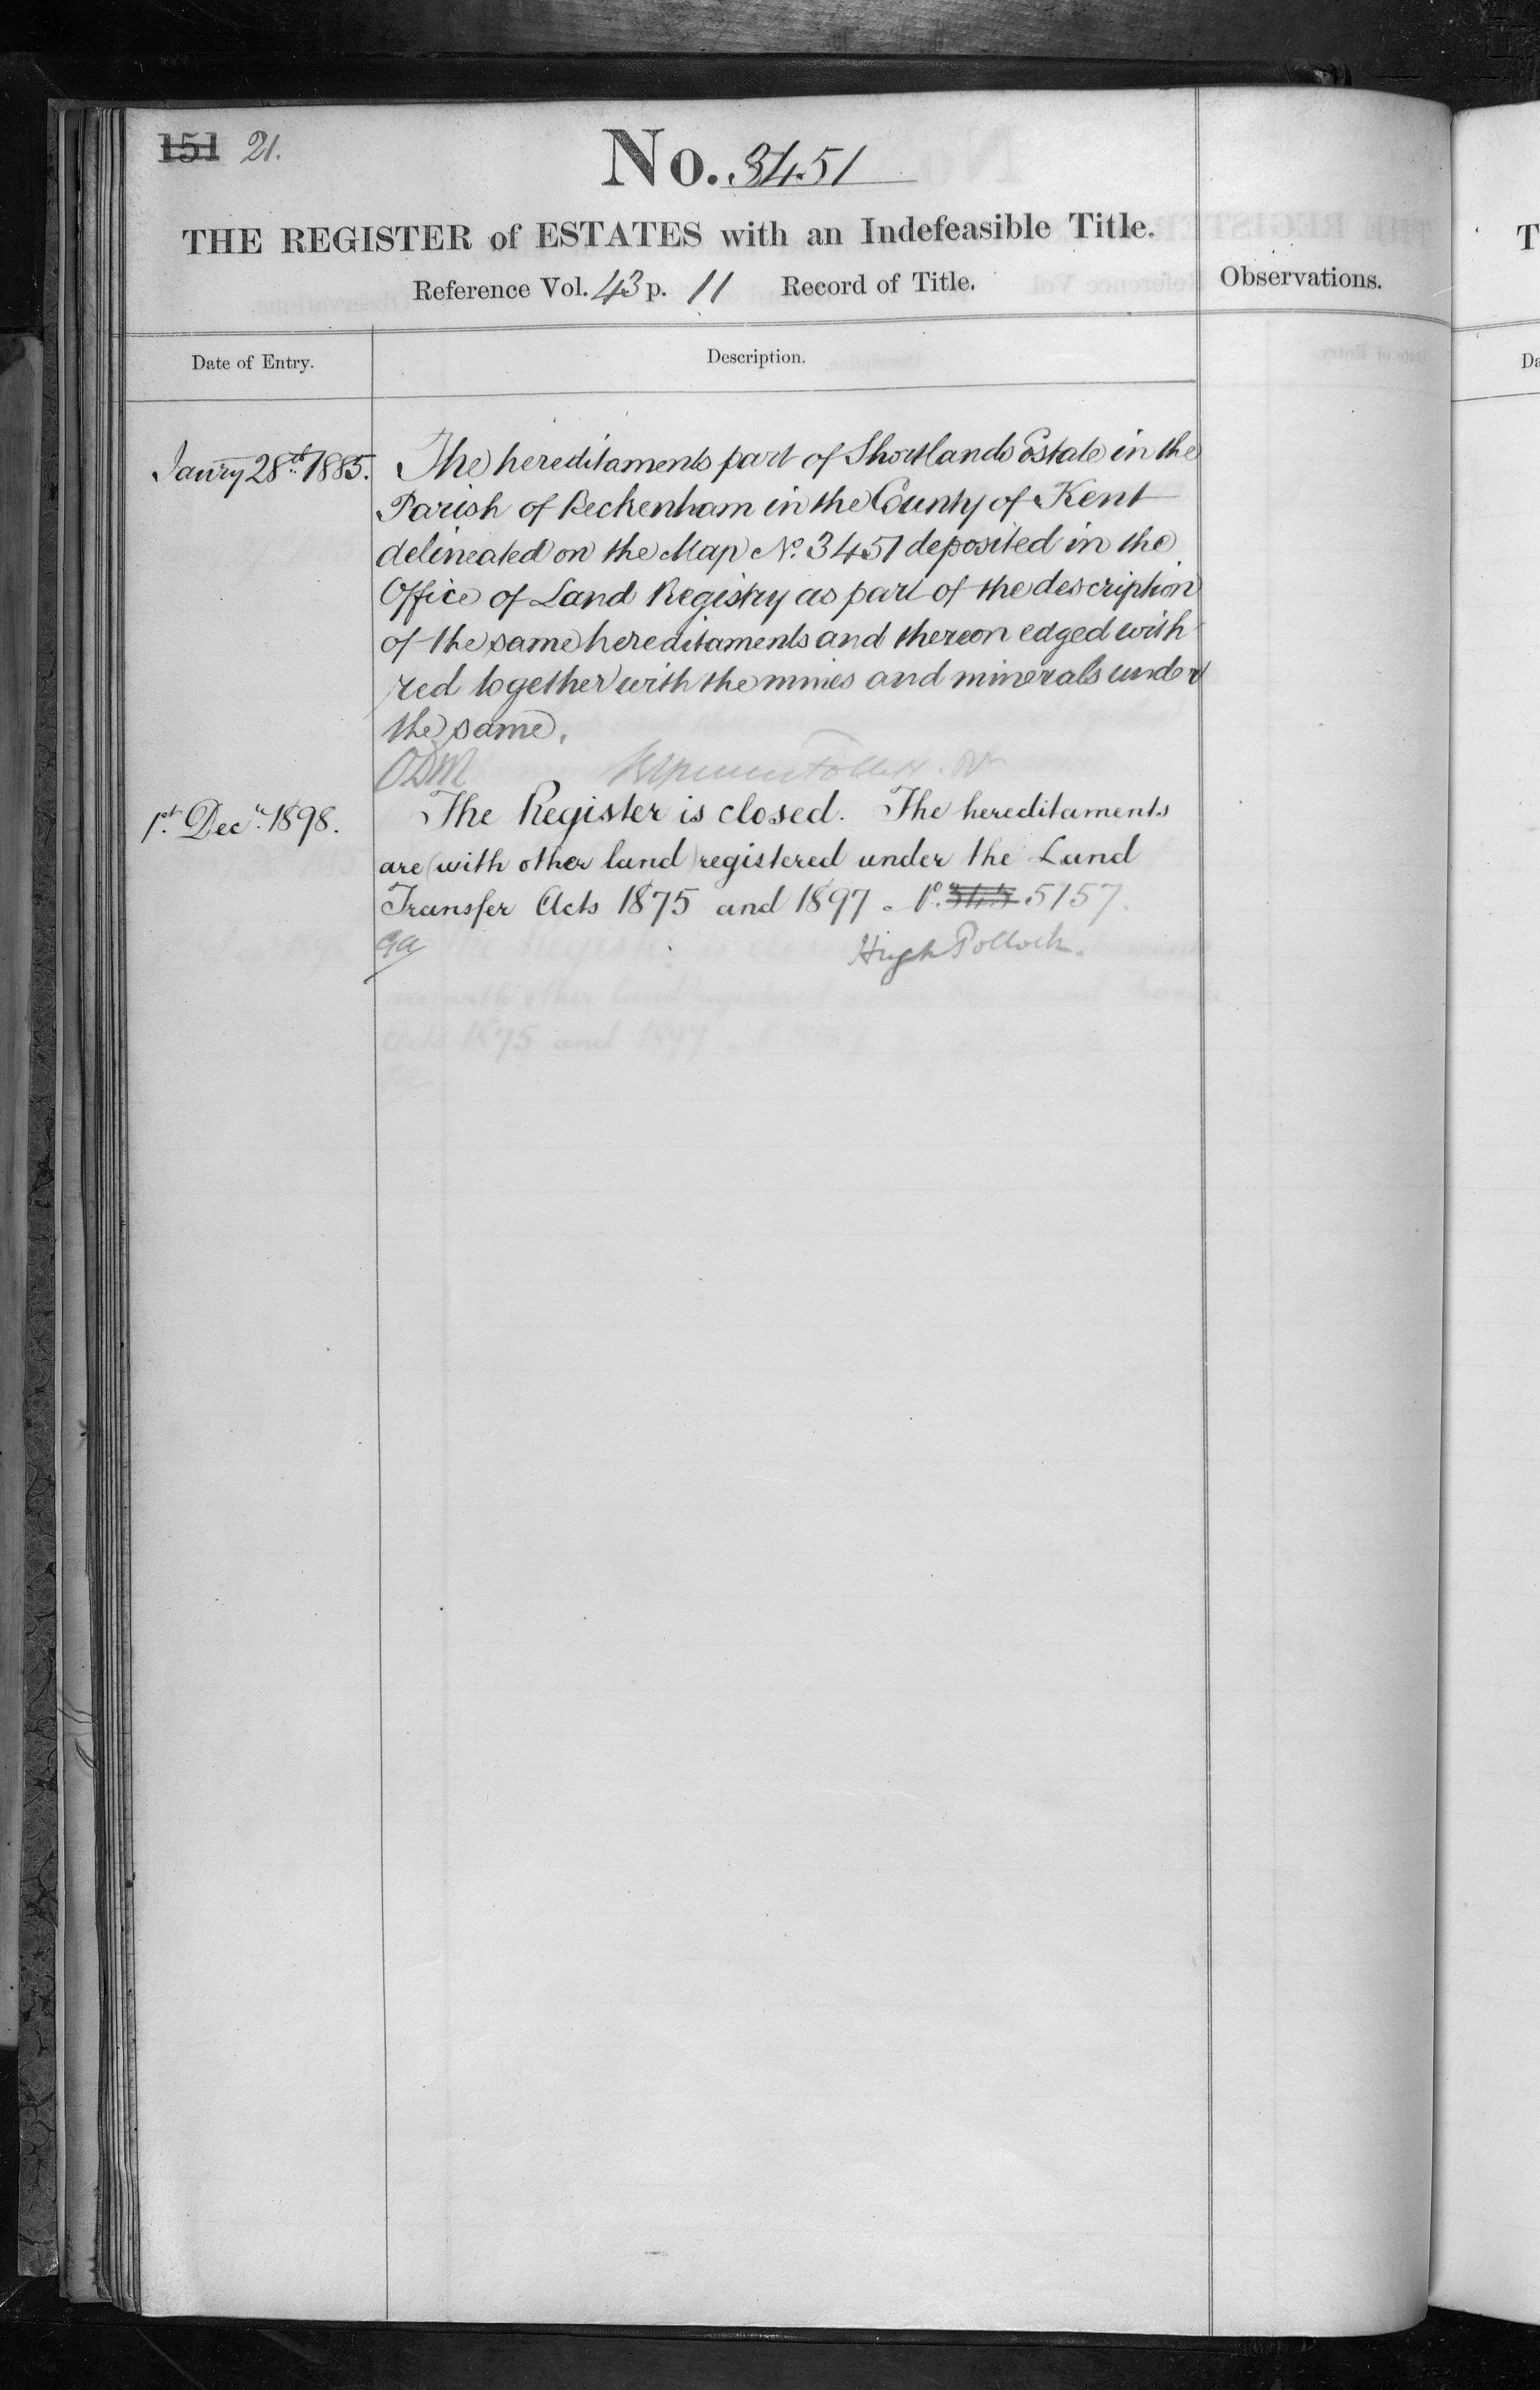 151 21.
No. 3451
THE REGISTER of ESTATES with an Indefeasible Title.
Reference Vol. 43 p. 11 Record of Title.
Observations.
Date of Entry.
Description.
Janry 28th 1885.
The hereditaments part of Shortlands Estate in the
Parish of Beckenham in the County of Kent
delineated on the Map No. 3451 deposited in the
Office of Land Registry as part of the description
of the same hereditaments and thereon edged with
red together with the mines and minerals under
the same.
1st Decr. 1898.
The Register is closed. The hereditaments
are (with other land) registered under the Land
Transfer Acts 1875 and 1897 - No. 5157.
Hugh Pollock.